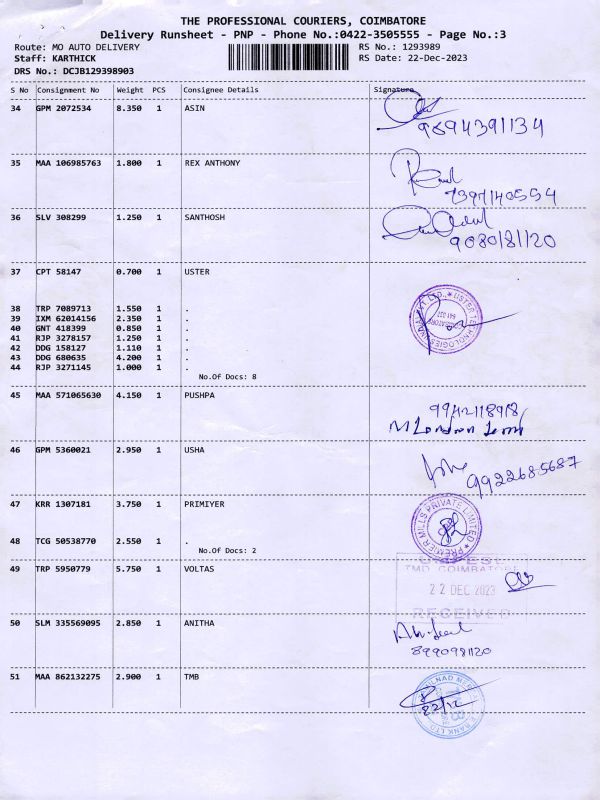 THE PROFESSIONAL COURIERS, COIMBATORE
Delivery Runsheet - PNP - Phone No.:0422-3505555 - Page No.:3
Route: MO AUTO DELIVERY RS No.: 1293989
Staff: KARTHICK RS Date: 22-Dec-2023
DRS No.: DCJB129398903
S No Consignment No Weight PCS Consignee Details Signature
34 GPM 2072534 8.350 1 ASIN
9894391134
35 MAA 106985763 1.800 1 REX ANTHONY
7397140554
36 SLV 308299 1.250 1 SANTHOSH
9080181120
37 CPT 58147 0.700 1 USTER
38 TRP 7089713 1.550 1 .
39 IXM 62014156 2.350 1 .
40 GNT 418399 0.850 1 .
41 RJP 3278157 1.250 1 .
42 DDG 158127 1.110 1 .
43 DDG 680635 4.200 1 .
44 RJP 3271145 1.000 1 .
No.Of Docs: 8
45 MAA 571065630 4.150 1 PUSHPA
46 GPM 5360021 2.950 1 USHA
9922685687
47 KRR 1307181 3.750 1 PRIMIYER
PREMIER MILLS PRIVATE LIMITED
48 TCG 50538770 2.550 1 .
No.Of Docs: 2
49 TRP 5950779 5.750 1 VOLTAS
COIMBATORE
22 DEC 2023
RECEIVED
50 SLM 335569095 2.850 1 ANITHA
8990981120
51 MAA 862132275 2.900 1 TMB
22/12